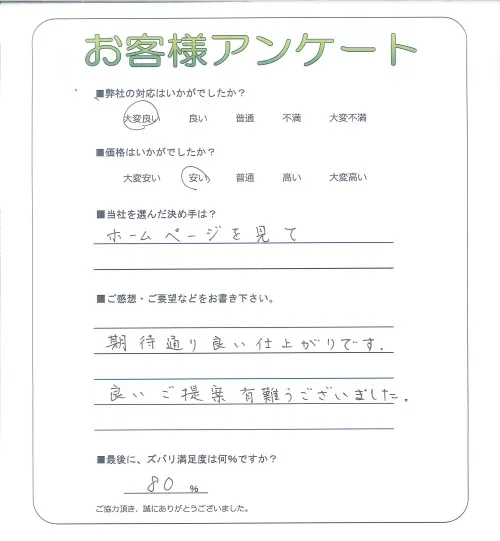 お客様アンケート
■弊社の対応はいかがでしたか？
大変良い 良い 普通 不満 大変不満
■価格はいかがでしたか？
大変安い 安い 普通 高い 大変高い
■当社を選んだ決め手は？
ホームページを見て
■ご感想・ご要望などをお書き下さい。
期待通り良い仕上がりです.
良いご提案有難うございました.
■最後に、ズバリ満足度は何%ですか？
80 %
ご協力頂き、誠にありがとうございました。